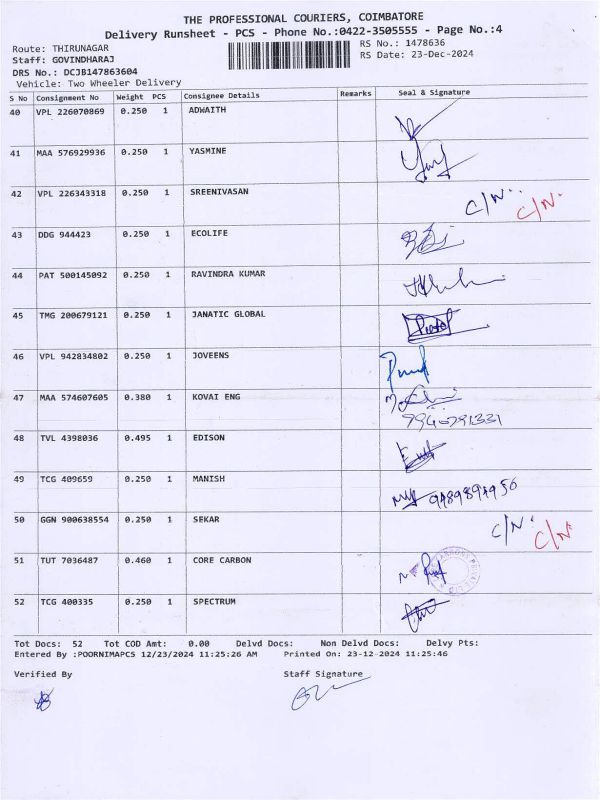 THE PROFESSIONAL COURIERS, COIMBATORE
Delivery Runsheet - PCS - Phone No.:0422-3505555 - Page No.:4
Route: THIRUNAGAR
Staff: GOVINDHARAJ
DRS No.: DCJB147863604
Vehicle: Two Wheeler Delivery
RS No.: 1478636
RS Date: 23-Dec-2024
S No Consignment No Weight PCS Consignee Details Remarks Seal & Signature
40 VPL 226070869 0.250 1 ADWAITH
41 MAA 576929936 0.250 1 YASMINE
42 VPL 226343318 0.250 1 SREENIVASAN C/N. C/N.
43 DDG 944423 0.250 1 ECOLIFE
44 PAT 500145092 0.250 1 RAVINDRA KUMAR
45 TMG 200679121 0.250 1 JANATIC GLOBAL
46 VPL 942834802 0.250 1 JOVEENS
47 MAA 574607605 0.380 1 KOVAI ENG
48 TVL 4398036 0.495 1 EDISON
49 TCG 409659 0.250 1 MANISH
50 GGN 900638554 0.250 1 SEKAR C/N. C/N.
51 TUT 7036487 0.460 1 CORE CARBON
52 TCG 400335 0.250 1 SPECTRUM
Tot Docs: 52 Tot COD Amt: 0.00 Delvd Docs: Non Delvd Docs: Delvy Pts:
Entered By :POORNIMAPCS 12/23/2024 11:25:26 AM Printed On: 23-12-2024 11:25:46
Verified By Staff Signature